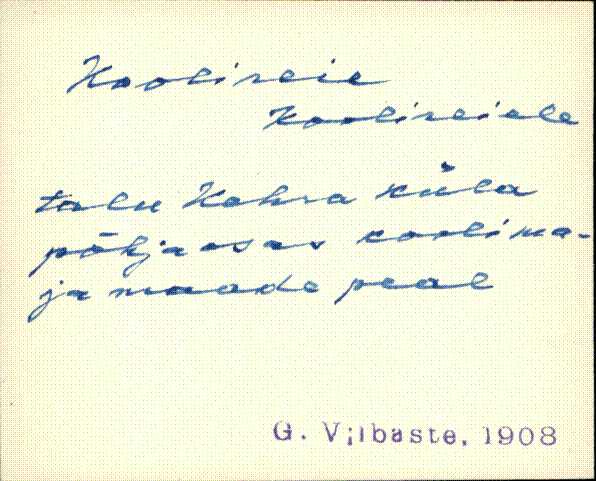 Koolireie
Koolireiele
talu Kehra küla
põhjaosas koolima-
ja maade peal
G. Vilbaste, 1908